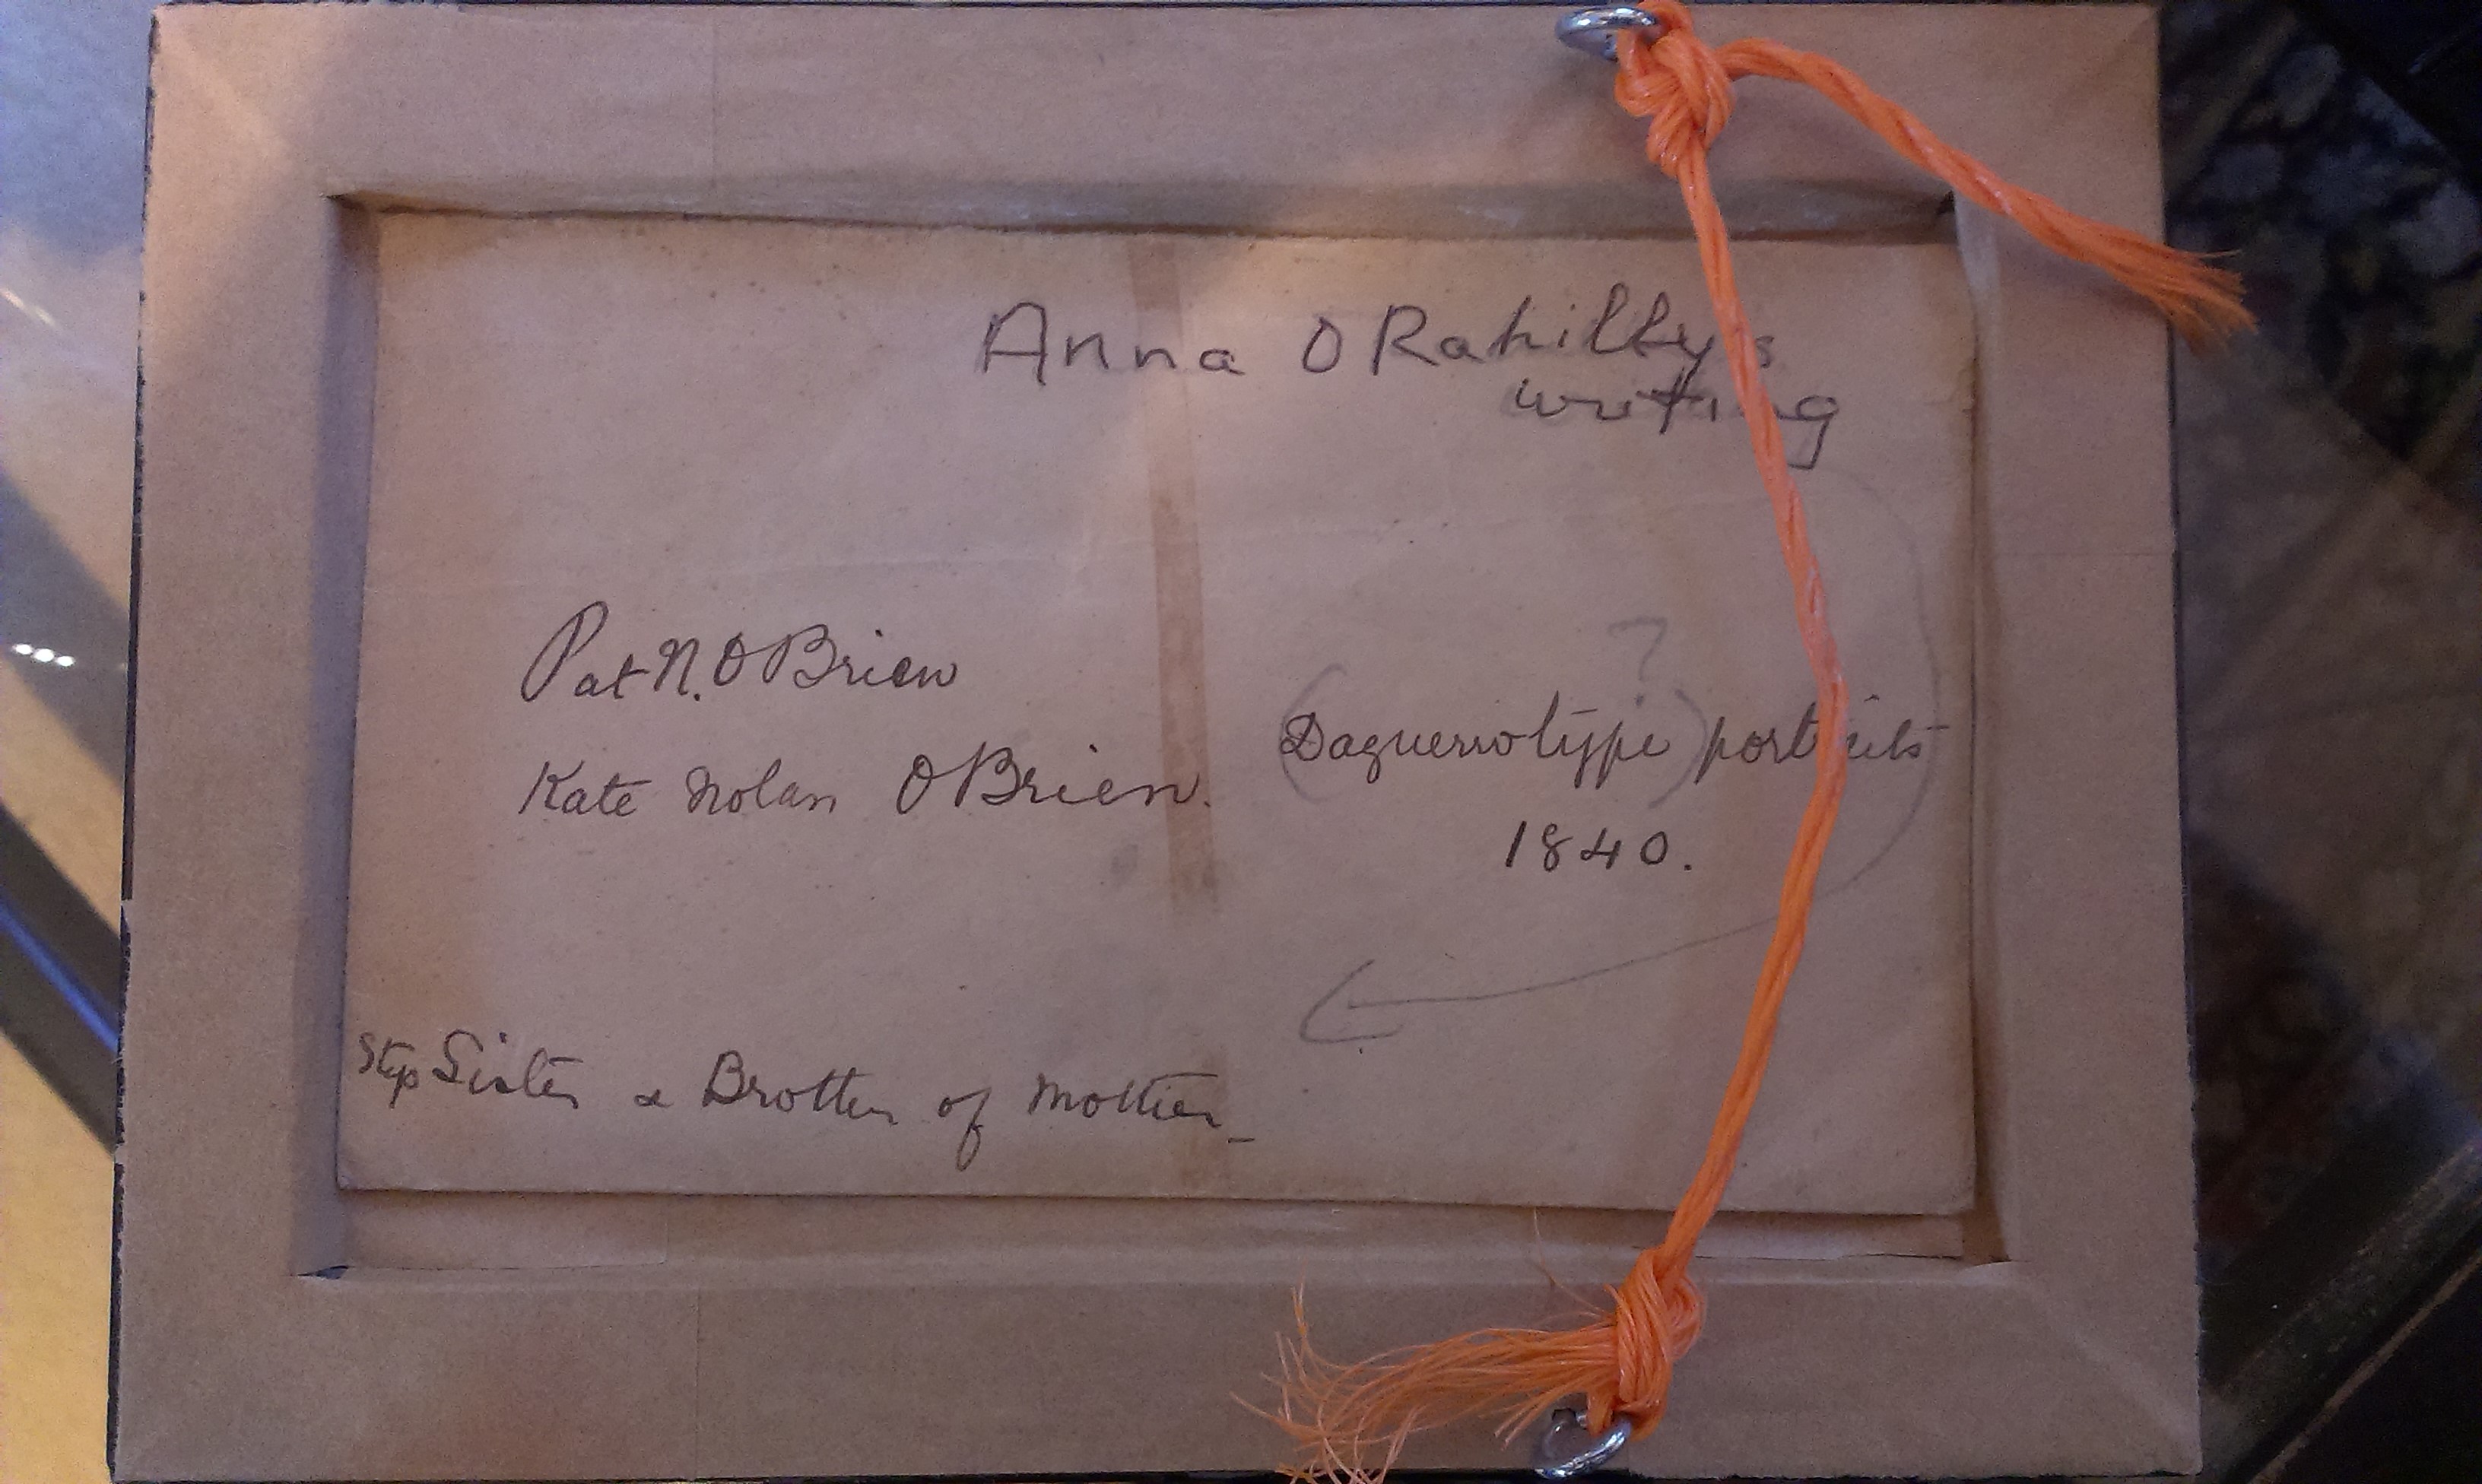 Anna O Rahilly's
writing
Pat N. O Brien
?
(Daguerrotype) portraits
Kate Nolan O Brien.
1840.
Step Sister & Brother of Mother_